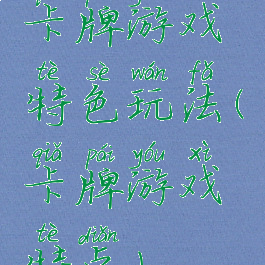 卡牌游戏
tè sè wán fǎ
特色玩法(
qiǎ pái yóu xì
卡牌游戏
tè diǎn
特点)